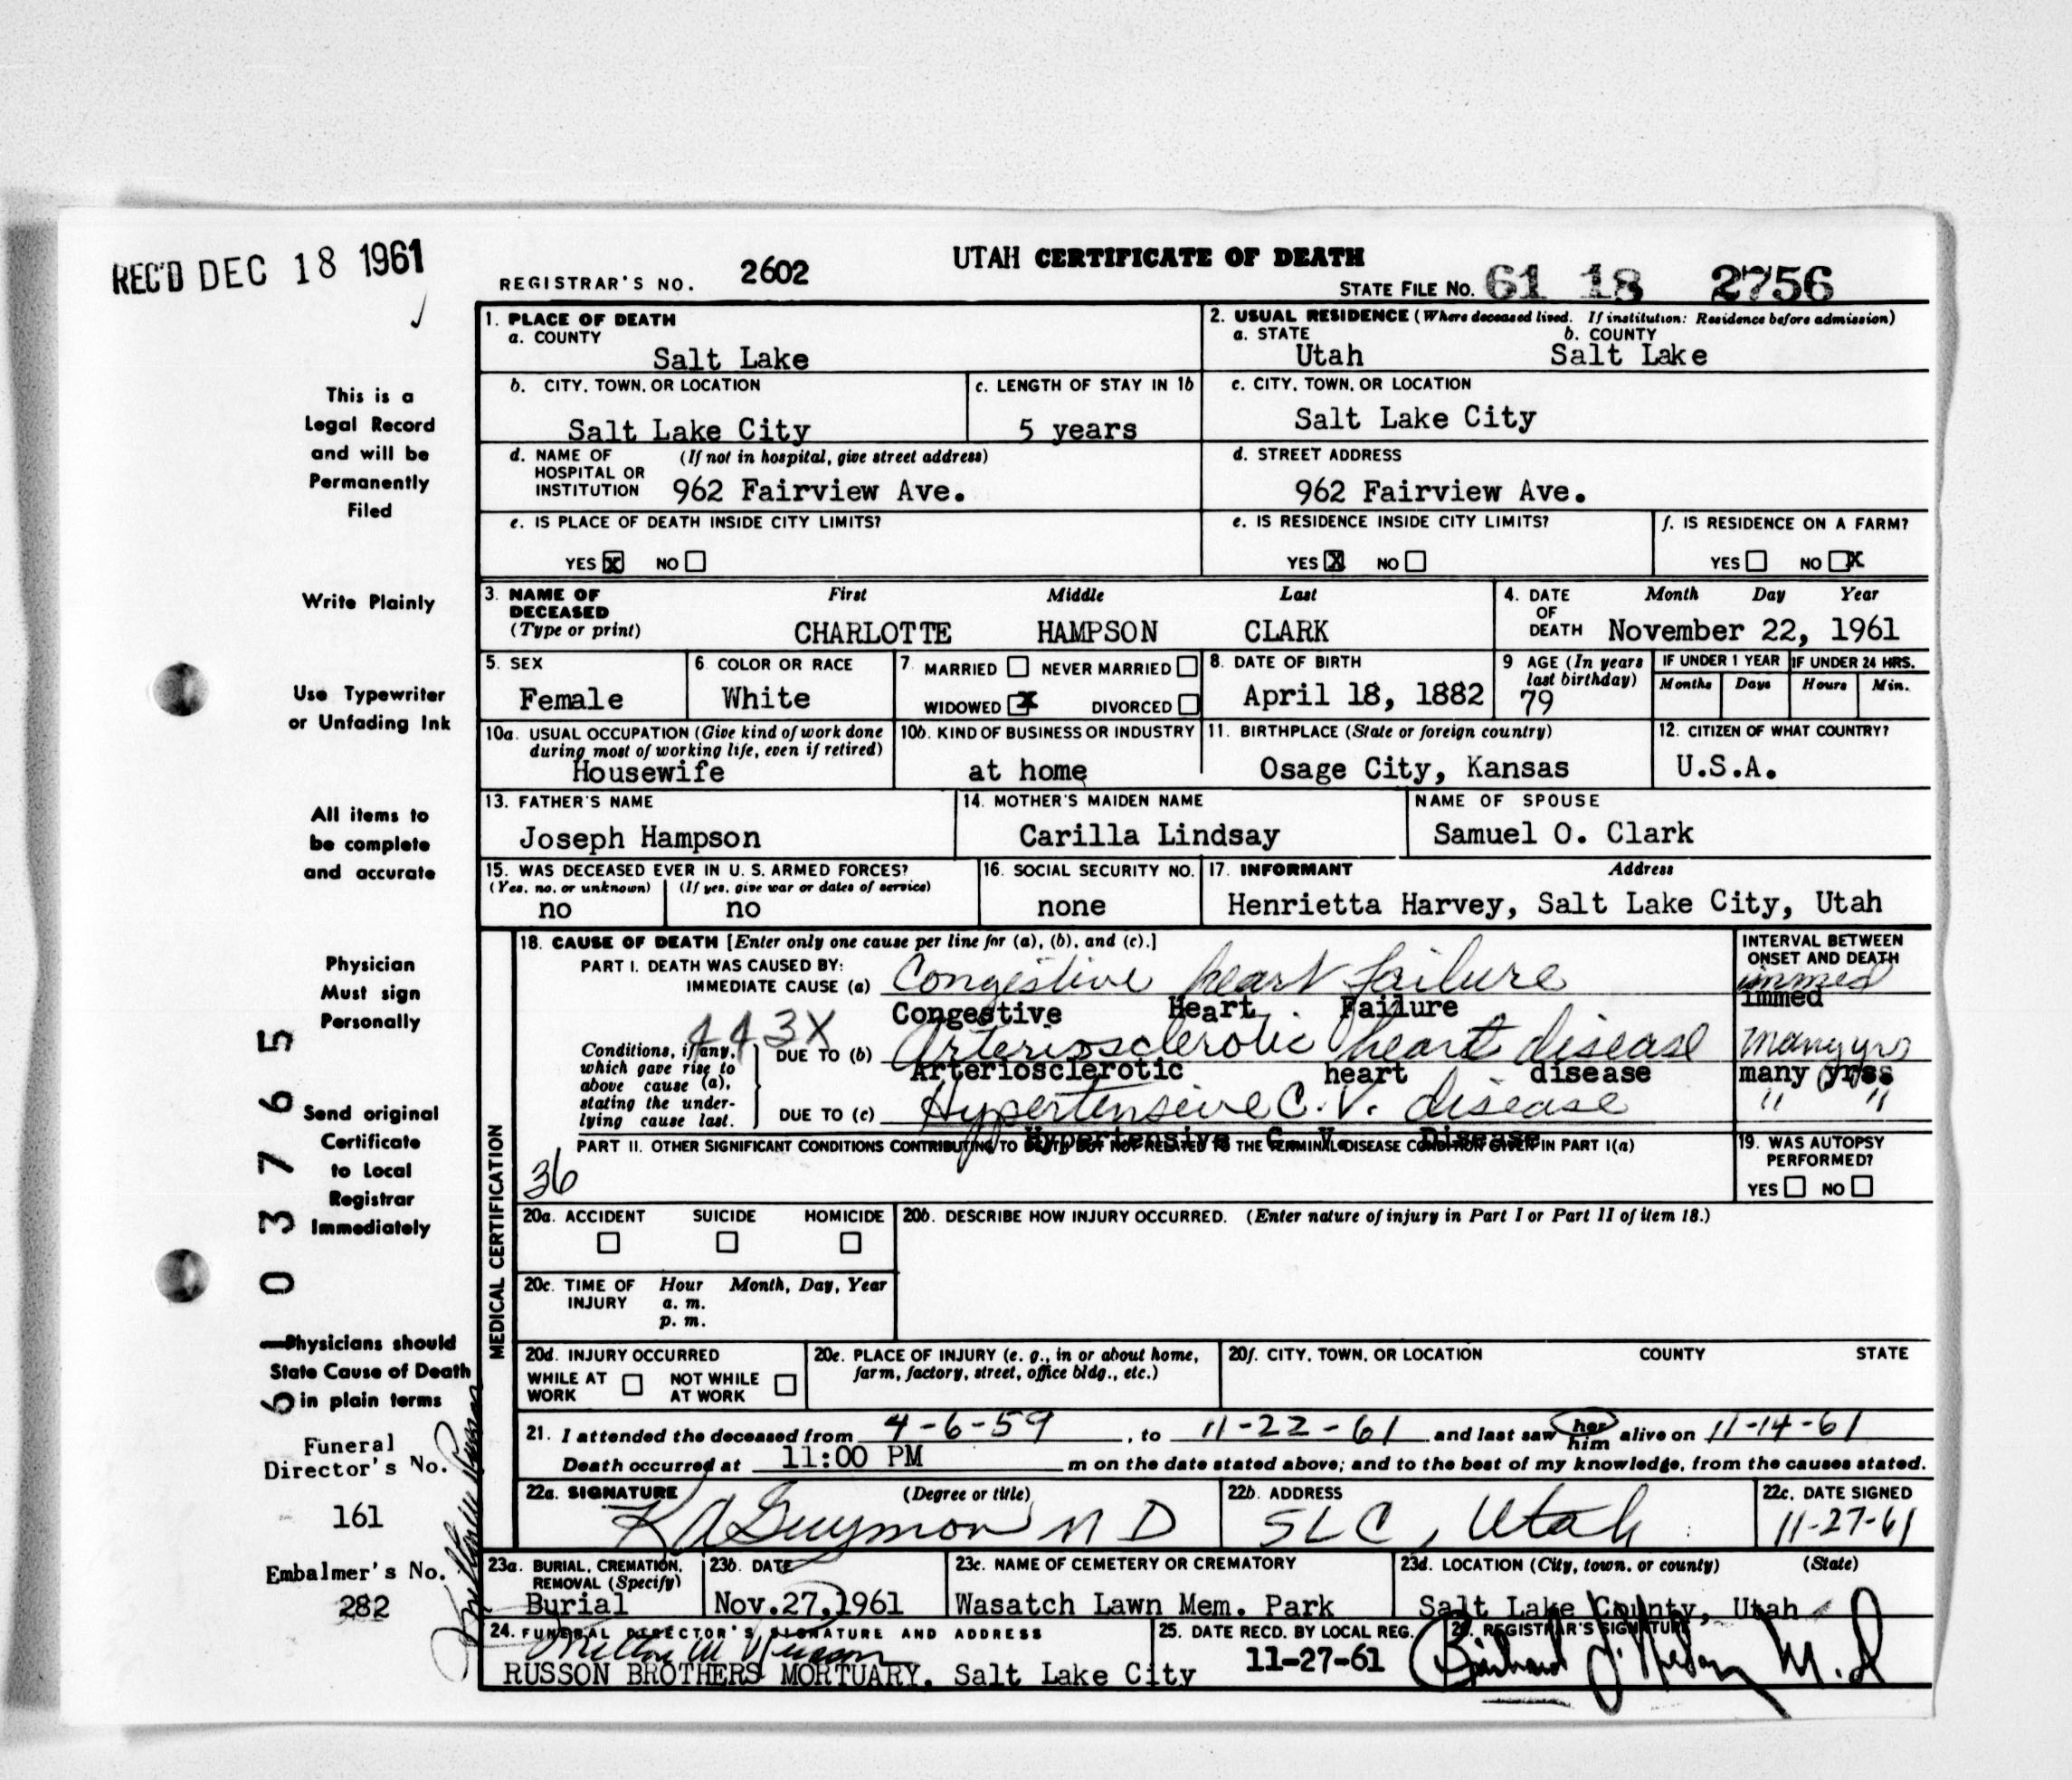 REC'D DEC 18 1961
UTAH CERTIFICATE OF DEATH
REGISTRAR'S NO. 2602
STATE FILE NO. 61 18 2756
1. PLACE OF DEATH
a. COUNTY
Salt Lake
2. USUAL RESIDENCE (Where deceased lived. If institution: Residence before admission)
a. STATE b. COUNTY
Utah Salt Lake
b. CITY, TOWN, OR LOCATION
Salt Lake City
c. LENGTH OF STAY IN 1b
5 years
c. CITY, TOWN, OR LOCATION
Salt Lake City
d. NAME OF (If not in hospital, give street address)
HOSPITAL OR
INSTITUTION 962 Fairview Ave.
d. STREET ADDRESS
962 Fairview Ave.
e. IS PLACE OF DEATH INSIDE CITY LIMITS?
YES X NO
e. IS RESIDENCE INSIDE CITY LIMITS?
YES X NO
f. IS RESIDENCE ON A FARM?
YES NO X
3. NAME OF First Middle Last
DECEASED
(Type or print) CHARLOTTE HAMPSON CLARK
4. DATE Month Day Year
OF
DEATH November 22, 1961
5. SEX
Female
6. COLOR OR RACE
White
7. MARRIED NEVER MARRIED
WIDOWED X DIVORCED
8. DATE OF BIRTH
April 18, 1882
9 AGE (In years
last birthday)
79
IF UNDER 1 YEAR IF UNDER 24 HRS.
Months Days Hours Min.
10a. USUAL OCCUPATION (Give kind of work done
during most of working life, even if retired)
Housewife
10b. KIND OF BUSINESS OR INDUSTRY
at home
11. BIRTHPLACE (State or foreign country)
Osage City, Kansas
12. CITIZEN OF WHAT COUNTRY?
U.S.A.
13. FATHER'S NAME
Joseph Hampson
14. MOTHER'S MAIDEN NAME
Carilla Lindsay
NAME OF SPOUSE
Samuel O. Clark
15. WAS DECEASED EVER IN U. S. ARMED FORCES?
(Yes, no, or unknown) (If yes, give war or dates of service)
no no
16. SOCIAL SECURITY NO.
none
17. INFORMANT Address
Henrietta Harvey, Salt Lake City, Utah
MEDICAL CERTIFICATION
18. CAUSE OF DEATH [Enter only one cause per line for (a), (b), and (c).]
PART I. DEATH WAS CAUSED BY:
IMMEDIATE CAUSE (a) Congestive heart failure
Congestive Heart Failure
443X
Conditions, if any,
which gave rise to
above cause (a),
stating the under-
lying cause last.
DUE TO (b) Arteriosclerotic heart disease
Arteriosclerotic heart disease
DUE TO (c) Hypertensive C.V. disease
Hypertensive C. V. Disease
INTERVAL BETWEEN
ONSET AND DEATH
immed
immed
many yrs
many yrs
" "
PART II. OTHER SIGNIFICANT CONDITIONS CONTRIBUTING TO DEATH BUT NOT RELATED TO THE TERMINAL DISEASE CONDITION GIVEN IN PART I(a)
36
19. WAS AUTOPSY
PERFORMED?
YES NO
20a. ACCIDENT SUICIDE HOMICIDE
20b. DESCRIBE HOW INJURY OCCURRED. (Enter nature of injury in Part I or Part II of item 18.)
20c. TIME OF Hour Month, Day, Year
INJURY a. m.
p. m.
20d. INJURY OCCURRED
WHILE AT NOT WHILE
WORK AT WORK
20e. PLACE OF INJURY (e. g., in or about home,
farm, factory, street, office bldg., etc.)
20f. CITY, TOWN, OR LOCATION COUNTY STATE
21. I attended the deceased from 4-6-59, to 11-22-61 and last saw her him alive on 11-14-61
Death occurred at 11:00 PM m on the date stated above; and to the best of my knowledge, from the causes stated.
22a. SIGNATURE (Degree or title)
K A Guymon M D
22b. ADDRESS
SLC, Utah
22c. DATE SIGNED
11-27-61
23a. BURIAL, CREMATION,
REMOVAL (Specify)
Burial
23b. DATE
Nov.27,1961
23c. NAME OF CEMETERY OR CREMATORY
Wasatch Lawn Mem. Park
23d. LOCATION (City, town, or county) (State)
Salt Lake County, Utah
24. FUNERAL DIRECTOR'S SIGNATURE AND ADDRESS
Milton W Russon
RUSSON BROTHERS MORTUARY, Salt Lake City
25. DATE RECD. BY LOCAL REG.
11-27-61
26. REGISTRAR'S SIGNATURE
M.D
This is a
Legal Record
and will be
Permanently
Filed
Write Plainly
Use Typewriter
or Unfading Ink
All items to
be complete
and accurate
Physician
Must sign
Personally
Send original
Certificate
to Local
Registrar
Immediately
Physicians should
State Cause of Death
in plain terms
Funeral
Director's No.
161
Embalmer's No.
282
Milton W Russon
61 03765